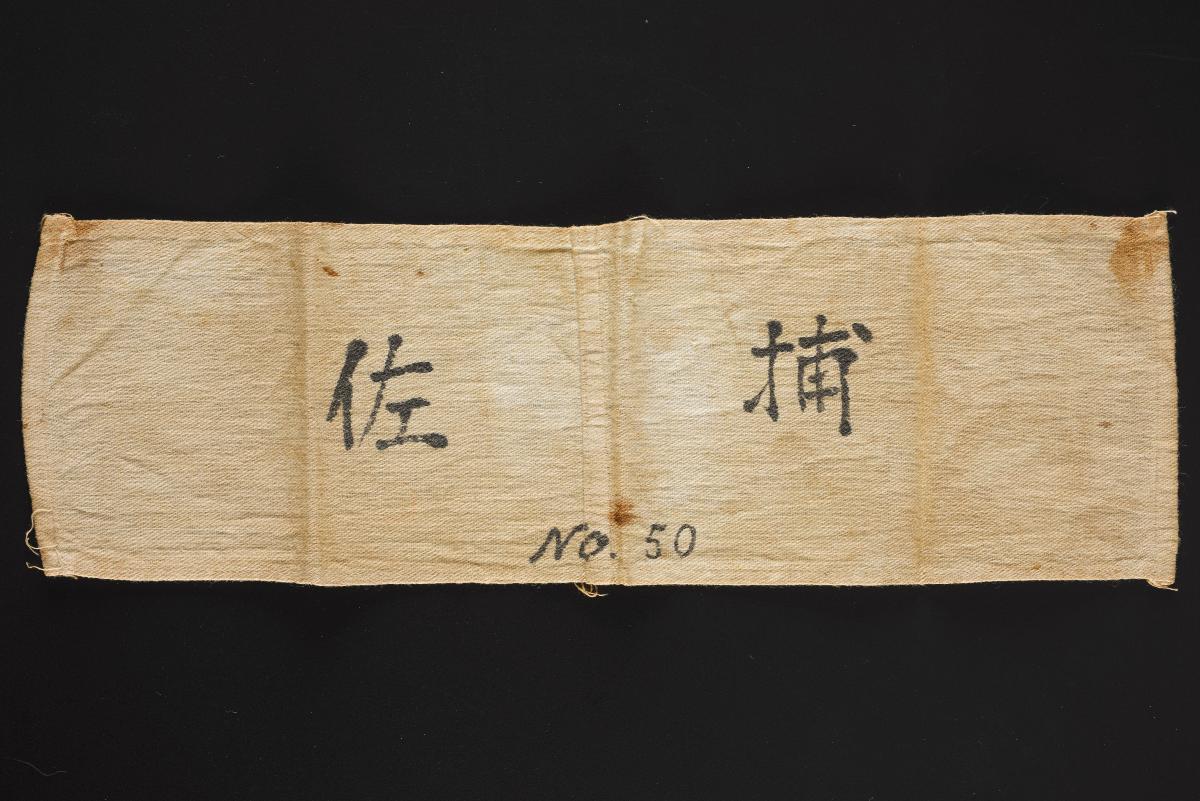 捕佐
No. 50